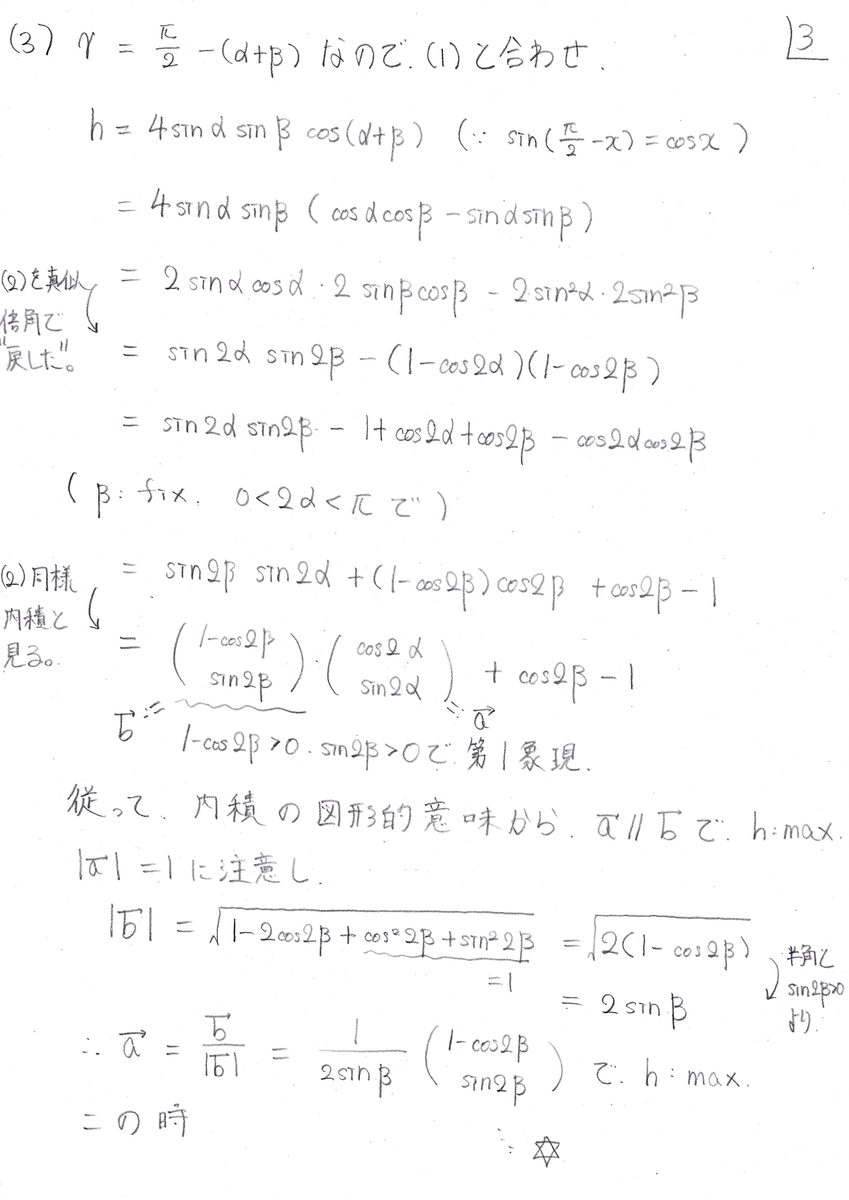 (3) γ = π/2 - (α+β) なので、(1) と合わせ、
3
h = 4 sin α sin β cos(α+β) (∵ sin(π/2 - x) = cos x)
= 4 sin α sin β (cos α cos β - sin α sin β)
= 2 sin α cos α · 2 sin β cos β - 2 sin²α · 2 sin²β
(2)を真似
倍角で
"戻した"。
= sin 2α sin 2β - (1 - cos 2α)(1 - cos 2β)
= sin 2α sin 2β - 1 + cos 2α + cos 2β - cos 2α cos 2β
(β: fix. 0 < 2α < π で)
= sin 2β sin 2α + (1 - cos 2β) cos 2β + cos 2β - 1
(2)同様
内積と
見る。
= (1 - cos 2β, sin 2β) · (cos 2α, sin 2α) + cos 2β - 1
b→ a→
1 - cos 2β > 0. sin 2β > 0 で 第1象現.
従って、内積の図形的意味から、a→ // b→ で、h: max.
|a→| = 1 に注意し、
|b→| = √(1 - 2cos 2β + cos² 2β + sin² 2β) = √(2(1 - cos 2β))
= 1
= 2 sin β
半角と
sin 2β>0
より
∴ a→ = b→/|b→| = 1/(2 sin β) (1 - cos 2β, sin 2β) で、h: max.
この時
∵ ✡